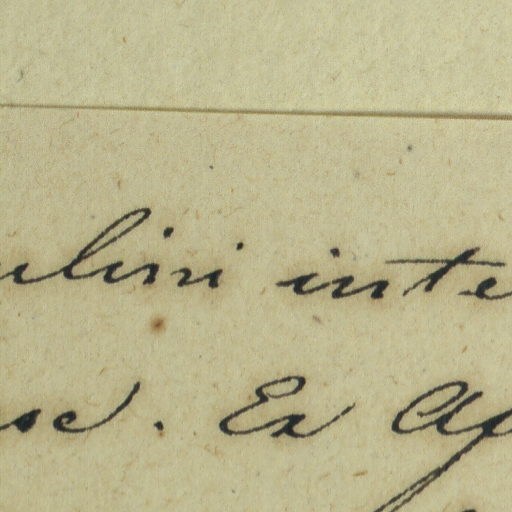 ulini inte
sc). Ex Ap